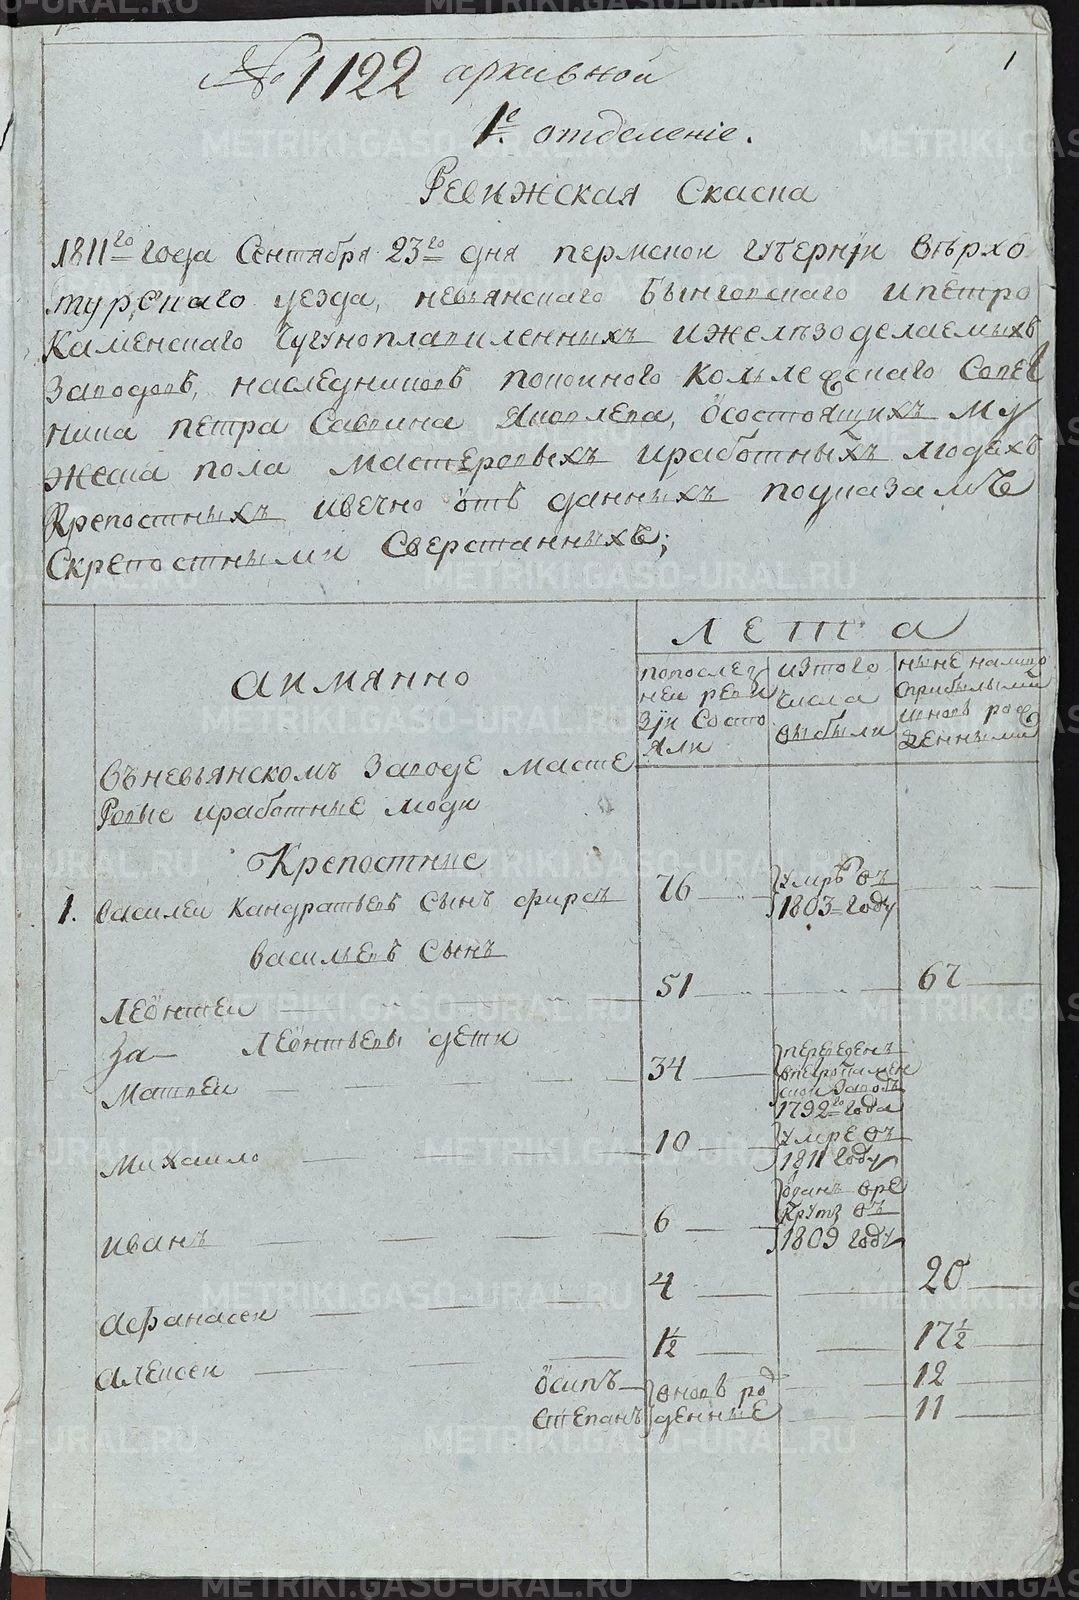 1
№ 1122 архивной
1е отделение.
Ревижская Скаска
1811го года Сентября 23го дня пермской губернїи верхо
турскаго уезда, невьянскаго Бынговскаго ипетро
Каменскаго Чугуноплавиленныхъ ижелѣзоделаемыхъ
Заводовъ, наследниковъ покоинаго Колълежскаго Совет
ника петра Саввина Яковлева, осостоящихъ Му
жеска пола мастеровыхъ иработныхъ людехъ
Крепостныхъ ивечно отъ данныхъ поуказамъ
Скрепостными Сверстанныхъ;
Лета
аимянно
попослед
неи реви
зїи Состо
яли
изтого
числа
выбыли
ныне налицо
Сприбылыми
иновь рож
денными
въневьянскомъ Заводе масте
ровые иработные люди
Крепостные
1. василеи Кандратьевъ Сынъ фирсъ 76 умръ въ
1803 году
васильевъ Сынъ
Леонтеи 51 67
За Леонтьевы дети
Матвеи 34 переведенъ
впетрокамен
скои Заводъ
1792го года
Михаило 10 умре въ
1811 году
иванъ 6 отданъ вре
круты въ
1809 году
Афанасеи 4 20
алексеи 1½ 17½
осипъ вновь рож 12
степанъ денные 11
METRIKI.GASO-URAL.RU